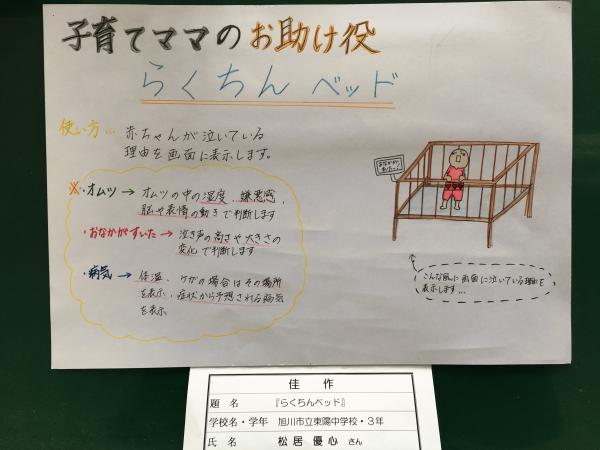 子育てママのお助け役
らくちんベッド
使い方… 赤ちゃんが泣いている
理由を画面に表示します。
※・オムツ → オムツの中の湿度、嫌悪感、
脳や表情の動きで判断します
・おなかがすいた → 泣き声の高さや大きさの
変化で判断します
・病気 → 体温、ケガの場合はその場所
を表示、症状から予想される病気
を表示
おなかが
こんな風に画面に泣いている理由を
表示します…
佳 作
題 名 『らくちんベッド』
学校名・学年 旭川市立東陽中学校・3年
氏 名 松居 優心 さん